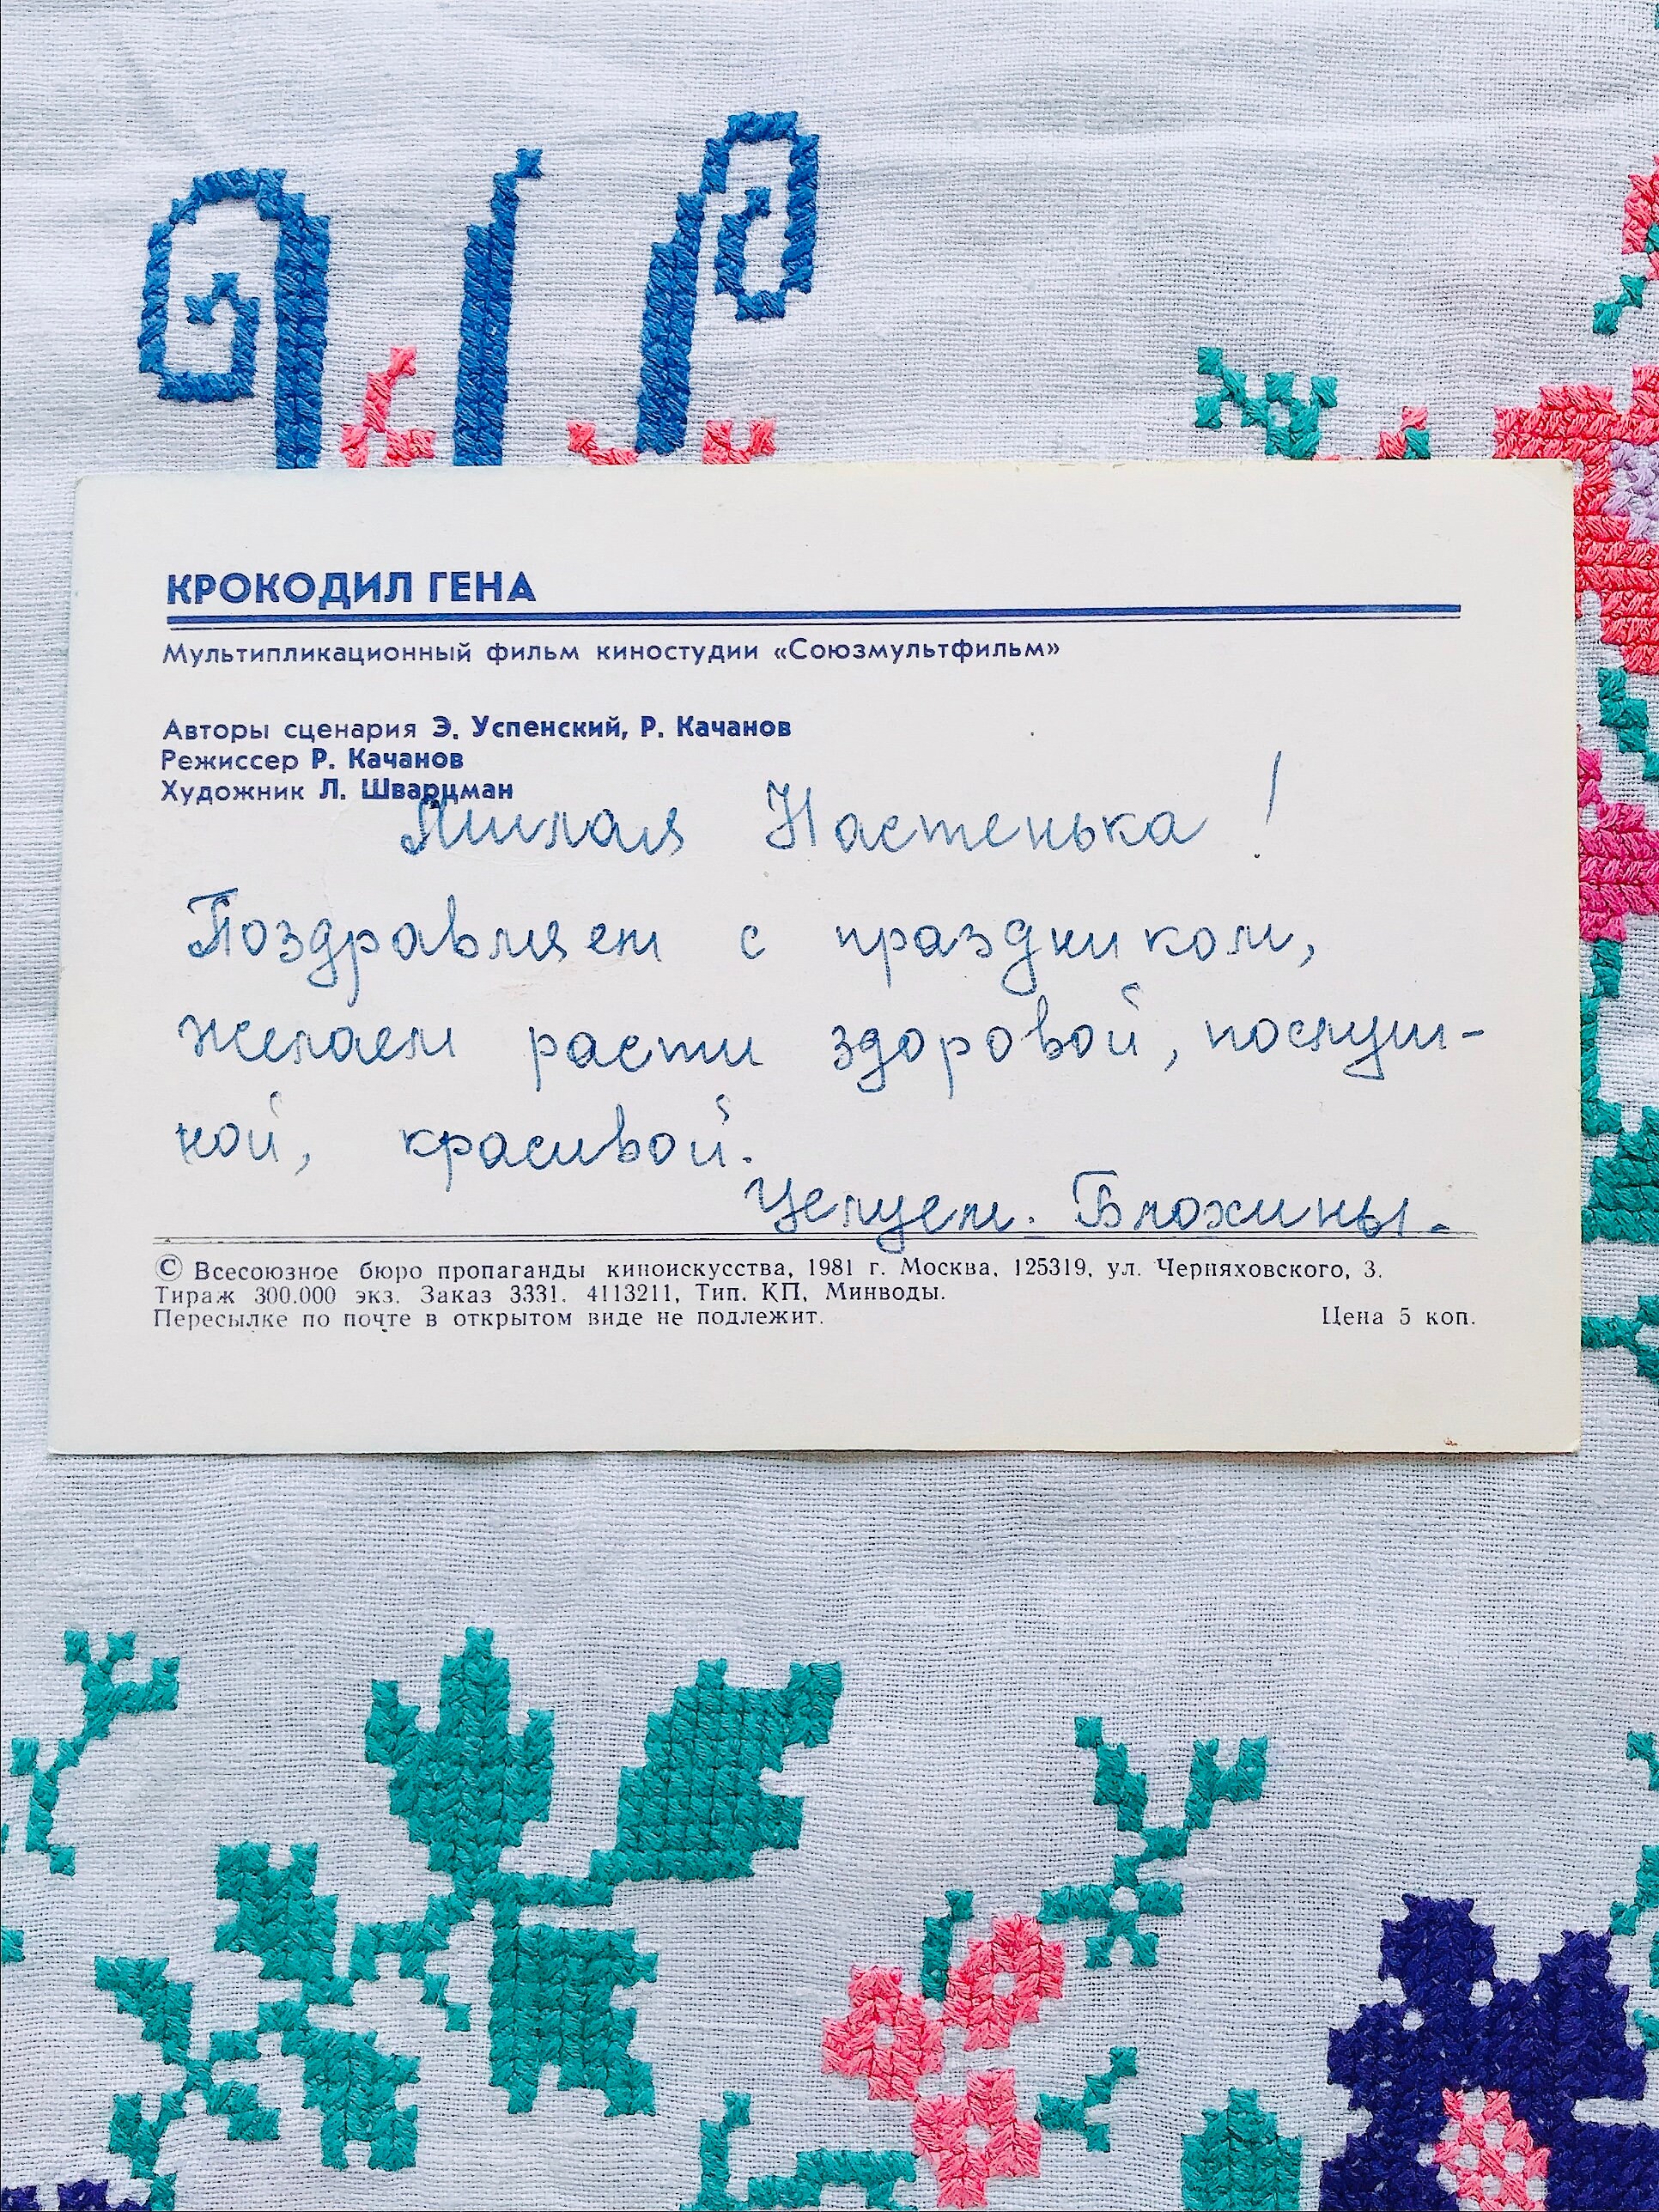 КРОКОДИЛ ГЕНА
Мультипликационный фильм киностудии «Союзмультфильм»
Авторы сценария Э. Успенский, Р. Качанов
Режиссер Р. Качанов
Художник Л. Шварцман
Милая Настенька!
Поздравляем с праздником,
желаем расти здоровой, послуш-
ной, красивой.
Целуем. Блохины.
© Всесоюзное бюро пропаганды киноискусства, 1981 г. Москва, 125319, ул. Черняховского, 3.
Тираж 300.000 экз. Заказ 3331. 4113211, Тип. КП, Минводы.
Пересылке по почте в открытом виде не подлежит. Цена 5 коп.